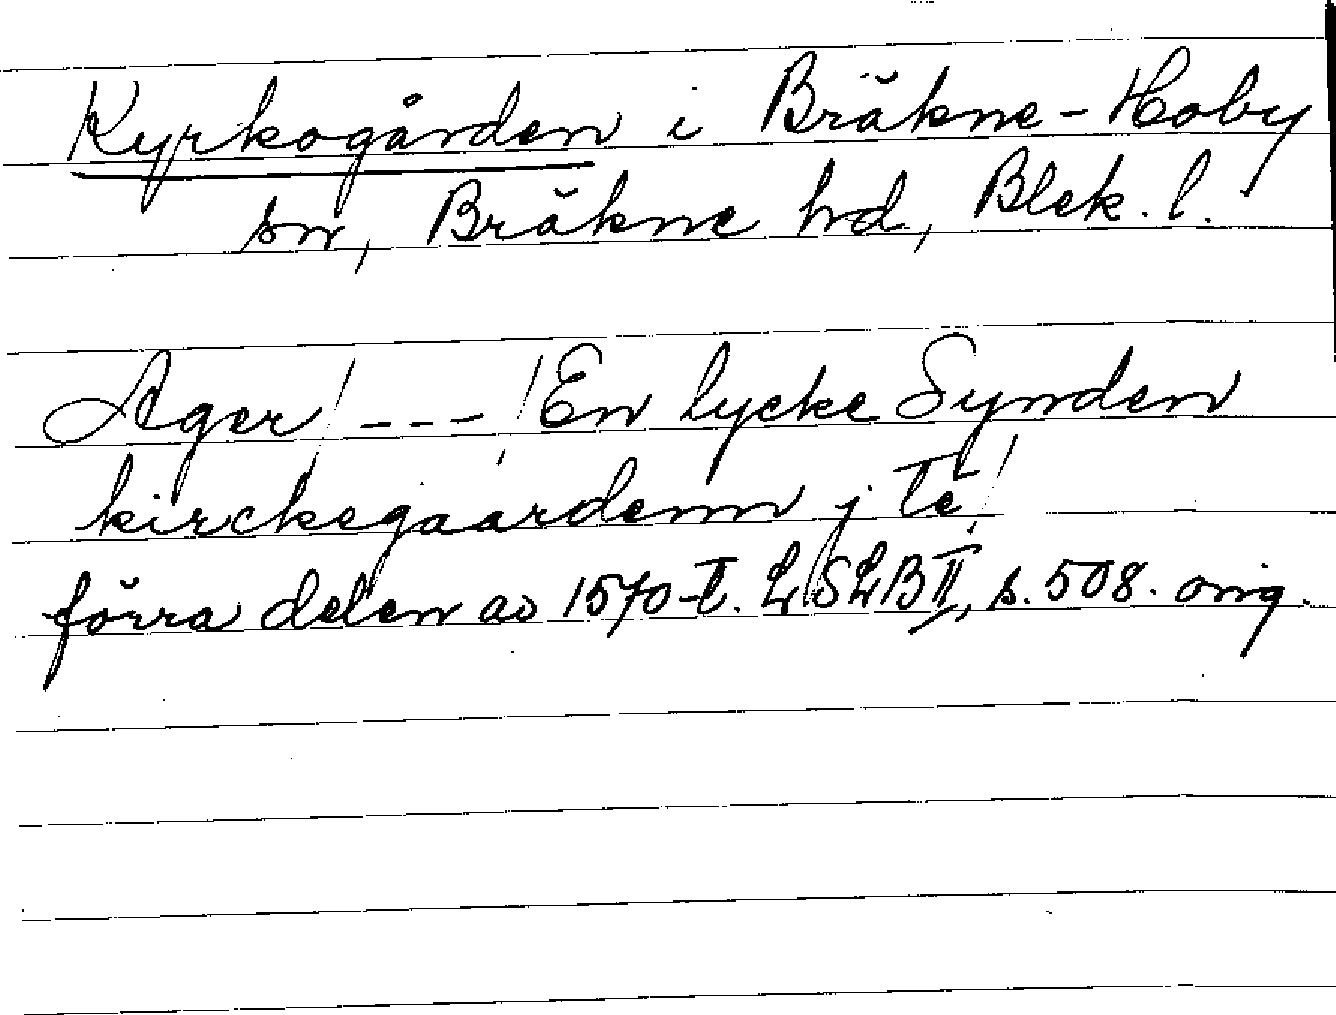 Kyrkogården i Bräkne-Hoby
sn, Bräkne hd, Blek. l.
Ager/---/En lycke Synden
kirckegaardenn j Te/
förra delen av 1570-t. LSLB II, s. 508. orig.